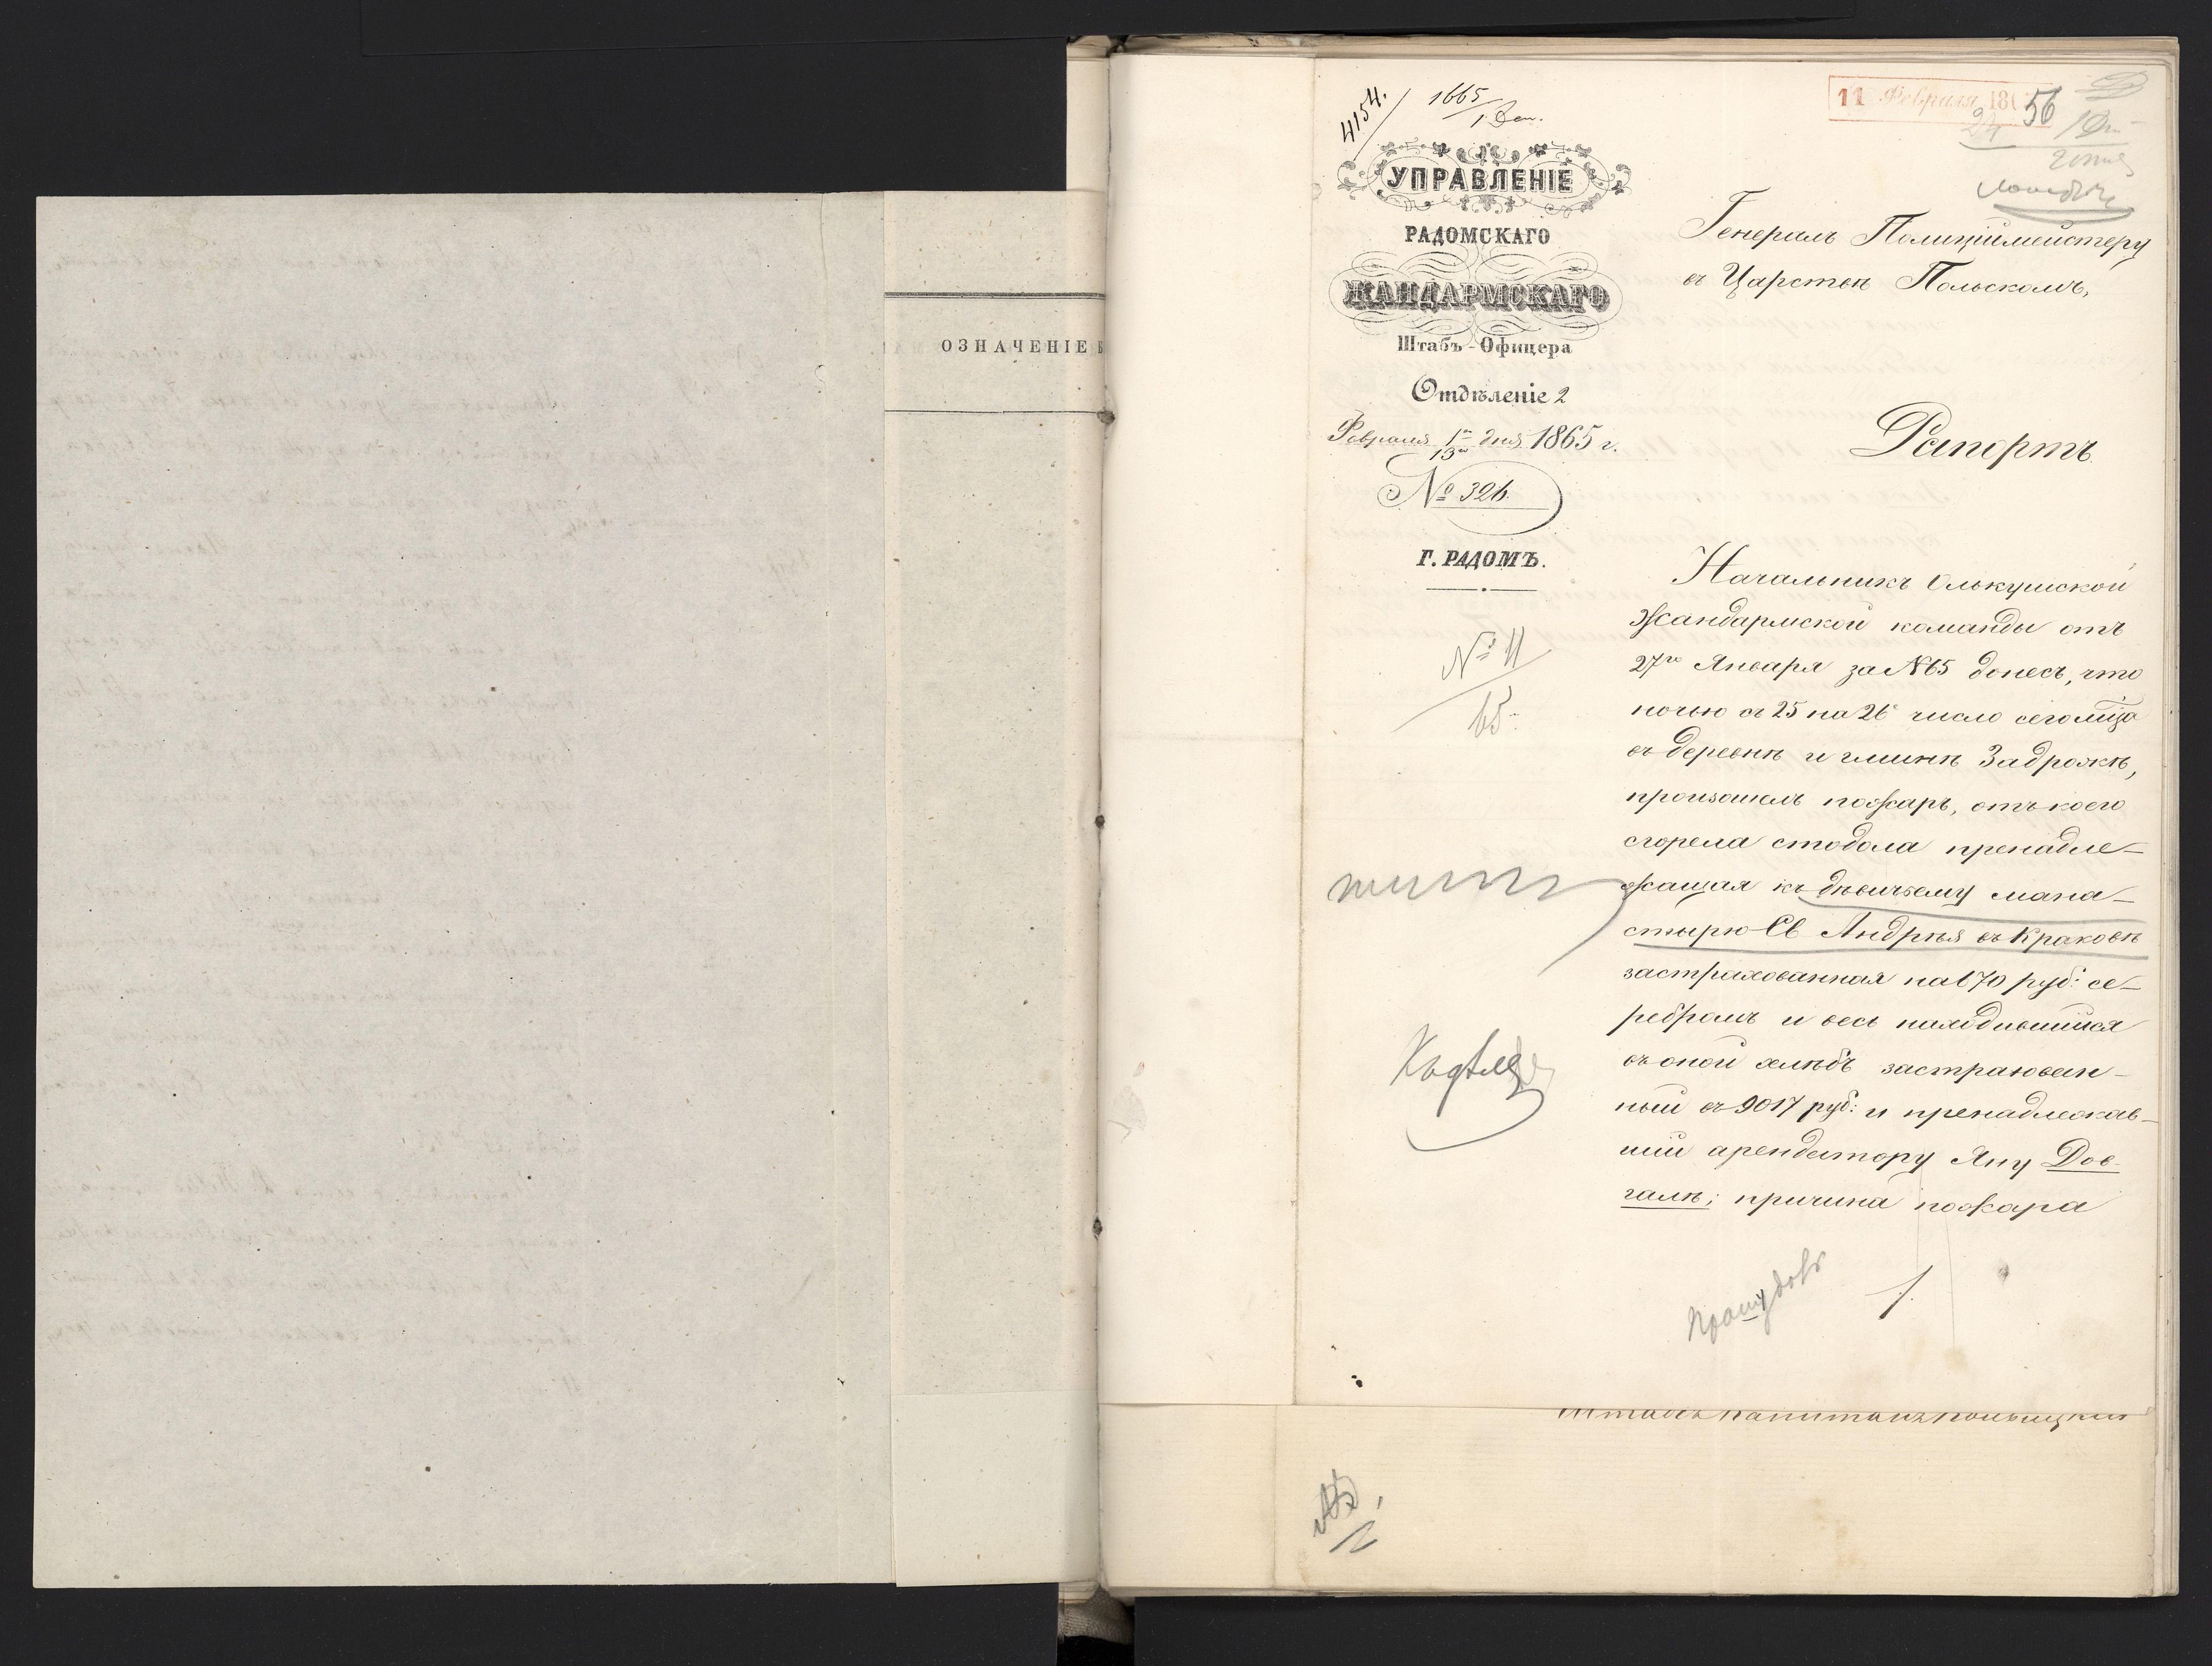 ОЗНАЧЕНІЕ
4154.
1665
1 Ден.
11 Февраля 18
56
УПРАВЛЕНІЕ
РАДОМСКАГО
ЖАНДАРМСКАГО
Штабъ-Офицера
Отдѣленіе 2
Февраля 1го/13го дня 1865 г.
№ 326.
Г. РАДОМЪ.
№ 11
65
Генералъ Полиціймейстеру
въ Царствѣ Польскомъ,
Рапортъ
Начальникъ Олькушской
Жандармской команды отъ
27го Января за №65 донесъ, что
ночью съ 25 на 26 число сего мца
въ деревнѣ и гминѣ Задрожѣ,
произошелъ пожаръ, отъ коего
сгорела стодола пренадле-
жащая къ дѣвичьему мана-
стырю Св Андрѣя въ Краковѣ
застрахованная на 670 руб: се-
ребромъ и весь находившийся
въ оной хлѣбъ застрахован-
ный въ 9017 руб: и пренадлежав-
ший арендатору Яну Дов-
галѣ; причина пожара
Къ дѣлу
Штабсъ Капитанъ